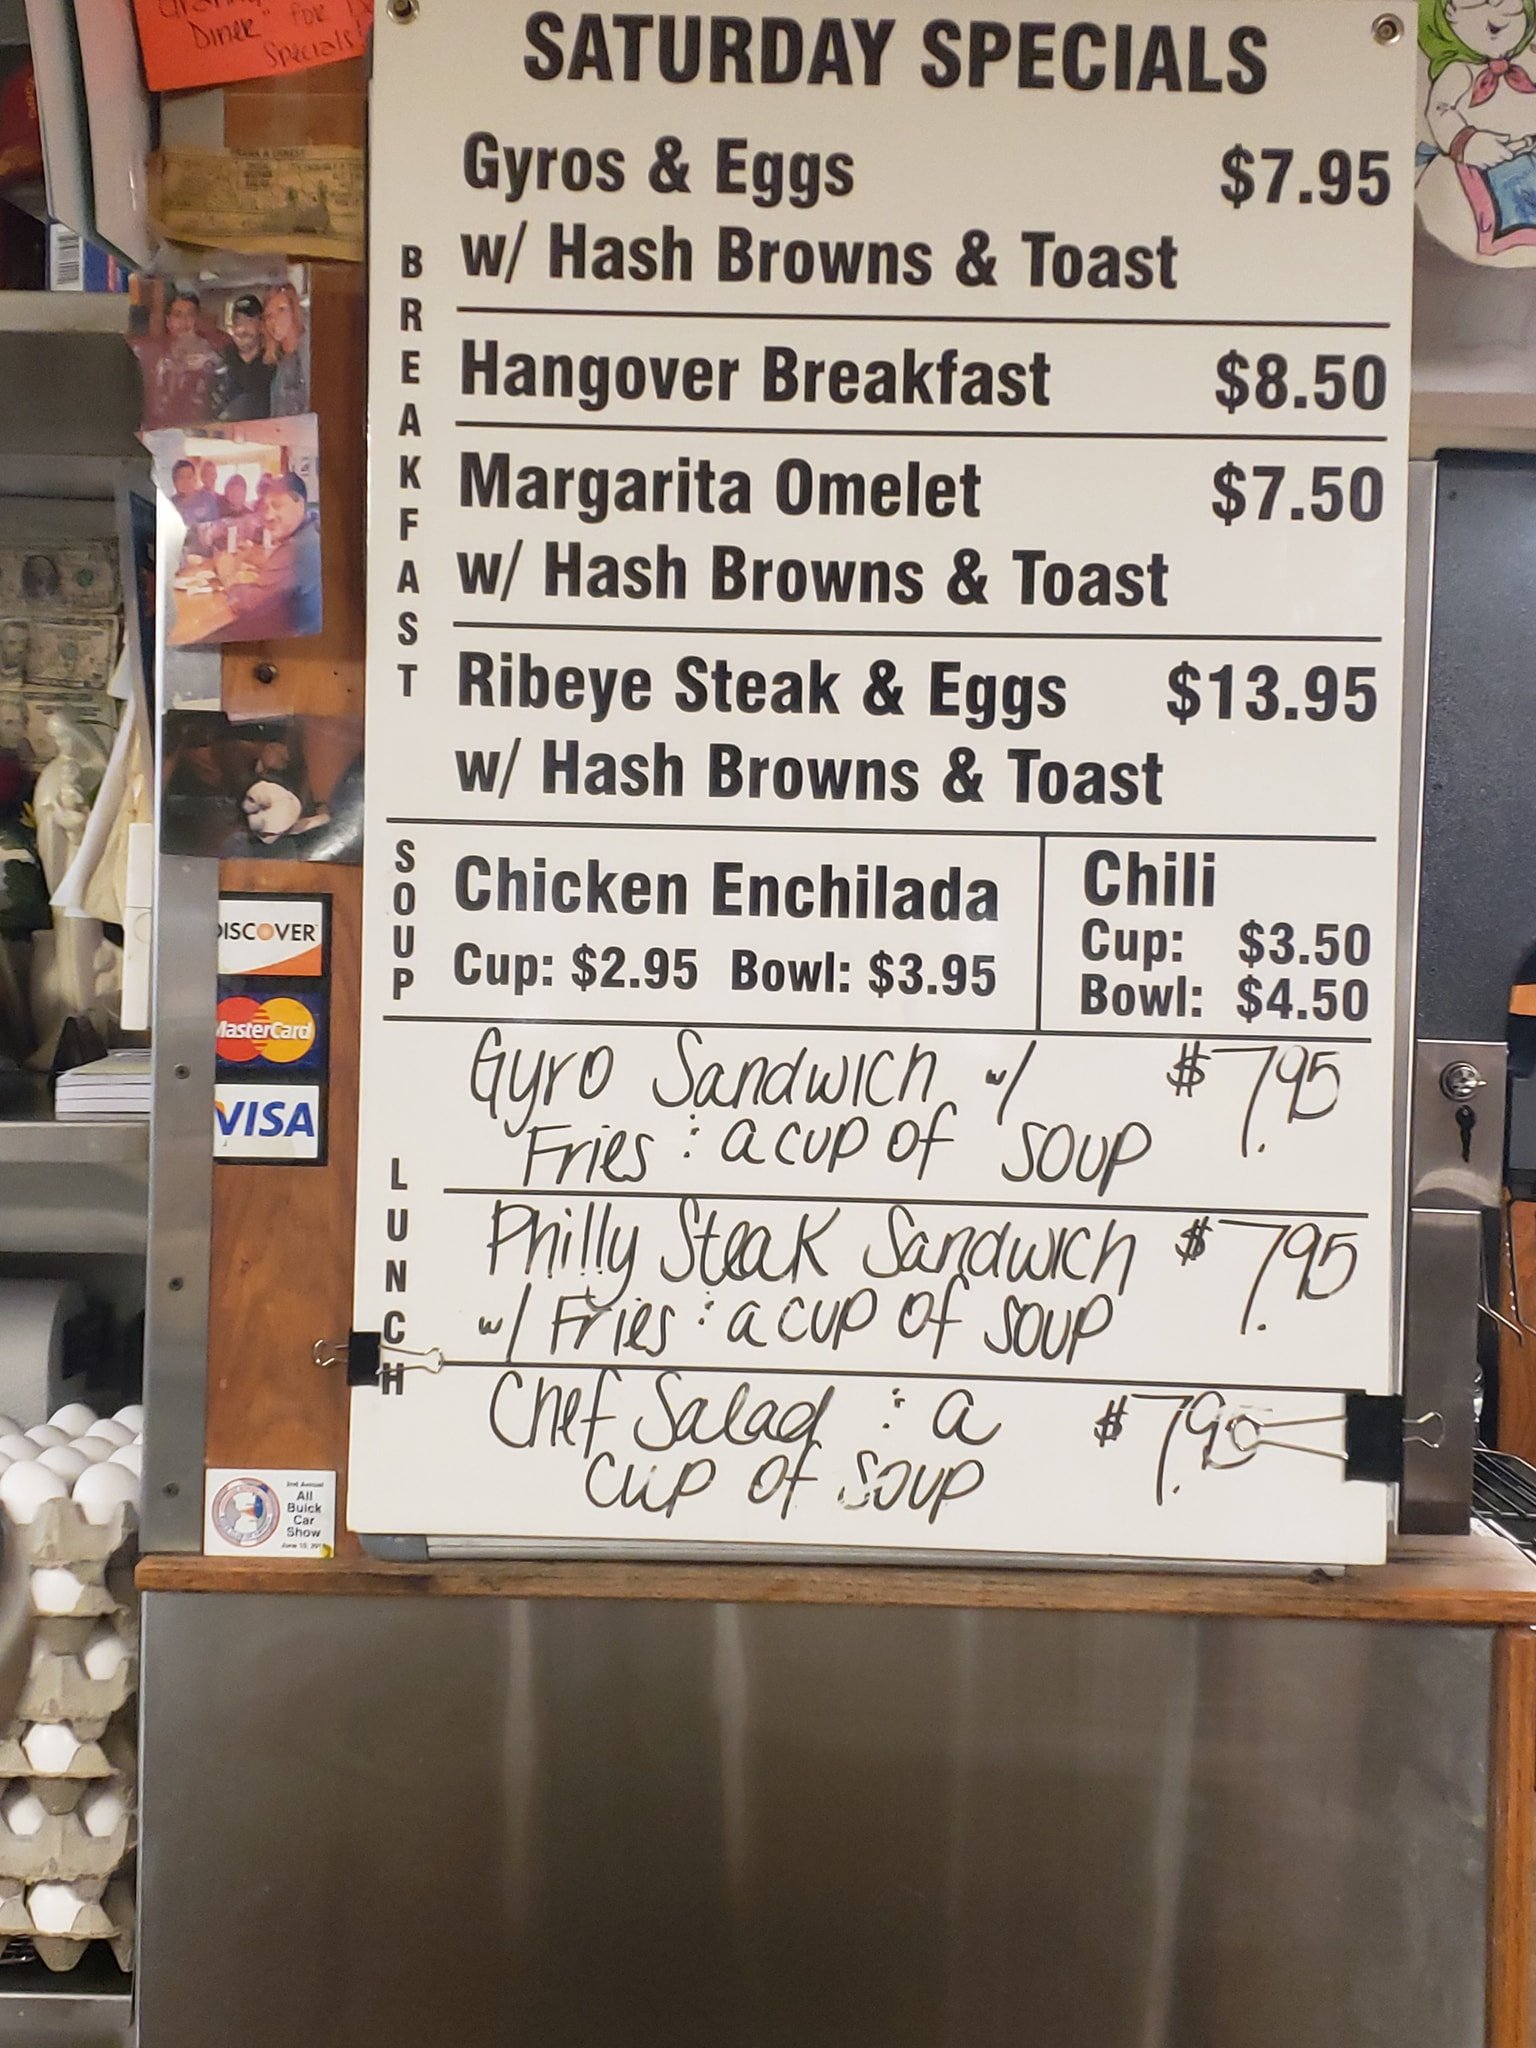 Diner" for
Specials!
SATURDAY SPECIALS
BREAKFAST
Gyros & Eggs $7.95
w/ Hash Browns & Toast
Hangover Breakfast $8.50
Margarita Omelet $7.50
w/ Hash Browns & Toast
Ribeye Steak & Eggs $13.95
w/ Hash Browns & Toast
SOUP
Chicken Enchilada
Cup: $2.95 Bowl: $3.95
Chili
Cup: $3.50
Bowl: $4.50
LUNCH
Gyro Sandwich w/ $7.95
Fries : a cup of soup
Philly Steak Sandwich $7.95
w/ Fries : a cup of soup
Chef Salad : a $7.95
cup of soup
DISCOVER
MasterCard
VISA
2nd Annual
All
Buick
Car
Show